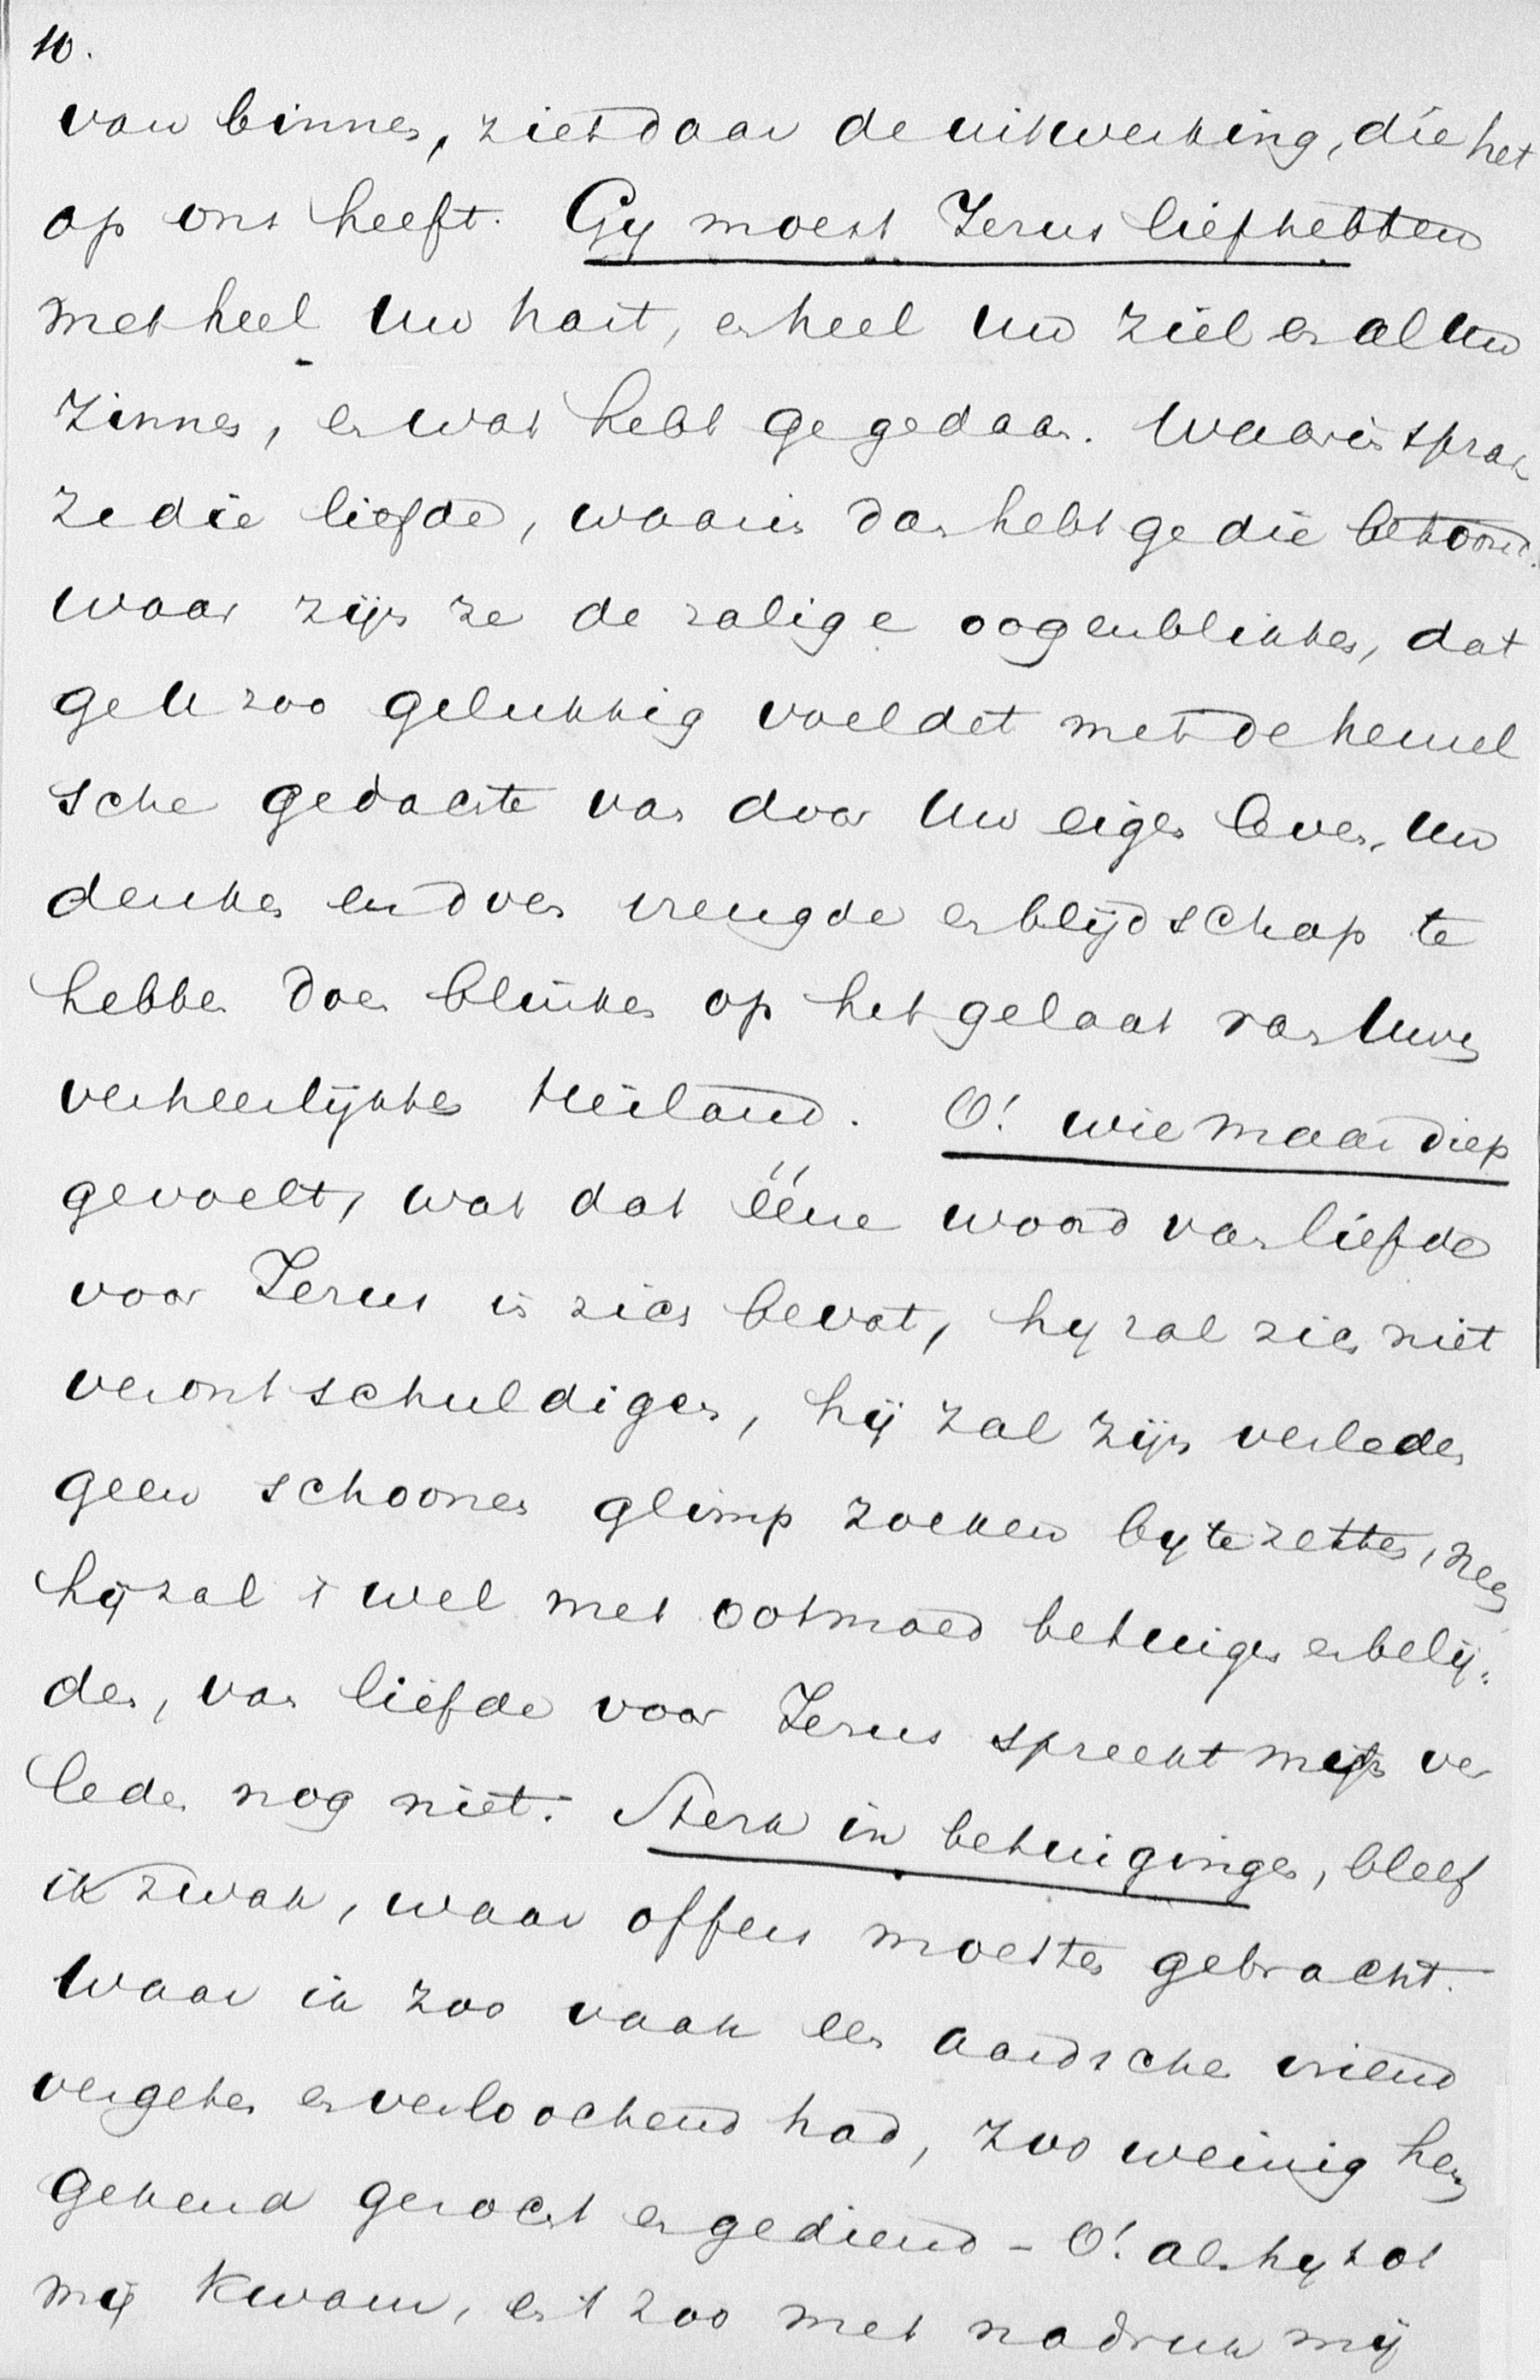 10.
van binnen, ziet daar de uitwerking, die het
op ons heeft. Gy moest Jezus liefhebben
met heel Uw hart, en heel Uw ziel en al Uw
zinnen, en wat hebt ge gedaan. Waarin sprak
ze die liefde, waarin dan hebt ge die betoond.
waar zijn ze de zalige oogenblikken, dat
ge U zoo gelukkig voeldet met de hemel
sche gedachte van door Uw eigen leven, Uw
denken en doen vreugde en blijdschap te
hebben doen blinken op het gelaat van Uwen
verheerlijkten Heiland. O! wie maar diep
gevoelt, wat dat ééne woord van liefde
voor Jezus in zich bevat, hy zal zich niet
verontschuldigen, hij zal zijn verleden
geen schoonen glimp zoeken by te zetten, neen
hij zal 't wel met ootmoed betuigen en belij-
den, van liefde voor Jezus spreekt mijn ver
leden nog niet. Sterk in betuigingen, bleef
ik zwak, waar offers moesten gebracht.
Waar ik zoo vaak een aardschen vriend
vergeten en verloochend had, zoo weinig hem
gekend gezocht en gediend - O! als hy tot
mij kwam, en 't zoo met nadruk mij